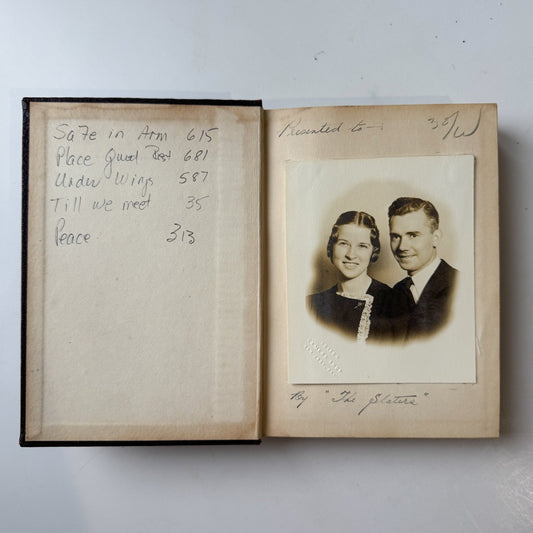 Safe in Arm 615
Place Quiet Rest 681
Under Wings 587
Till we meet 35
Peace 313
Presented to —
By "The Slaters"